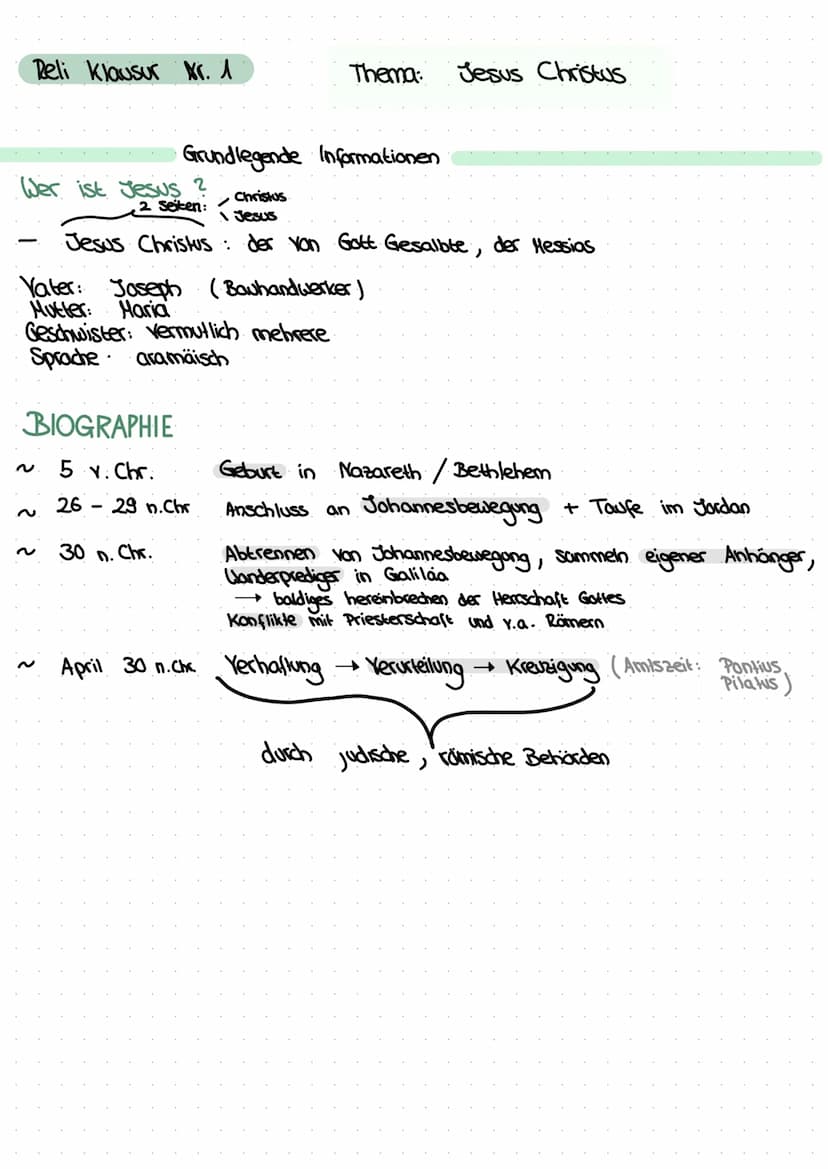 Reli Klausur Nr. 1
Thema: Jesus Christus
Grundlegende Informationen
Wer ist Jesus?
2 Seiten: / Christus
\ Jesus
– Jesus Christus : der von Gott Gesalbte, der Messias
Vater: Joseph (Bauhandwerker)
Mutter: Maria
Geschwister: vermutlich mehrere
Sprache: aramäisch
BIOGRAPHIE
~ 5 v. Chr. Geburt in Nazareth / Bethlehem
~ 26 – 29 n.Chr Anschluss an Johannesbewegung + Taufe im Jordan
~ 30 n. Chr. Abtrennen von Johannesbewegung, sammeln eigener Anhänger,
Wanderprediger in Galiläa
→ baldiges hereinbrechen der Herrschaft Gottes
Konflikte mit Priesterschaft und v.a. Römern
~ April 30 n.Chr. Verhaftung → Verurteilung → Kreuzigung (Amtszeit: Pontius
Pilatus)
durch jüdische, römische Behörden